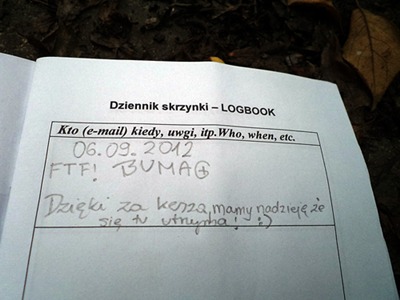 Dziennik skrzynki – LOGBOOK
Kto (e-mail) kiedy, uwgi, itp.Who, when, etc.
06.09.2012
FTF! BUMA
Dzięki za kesza, mamy nadzieję że
się tu utrzyma! :)